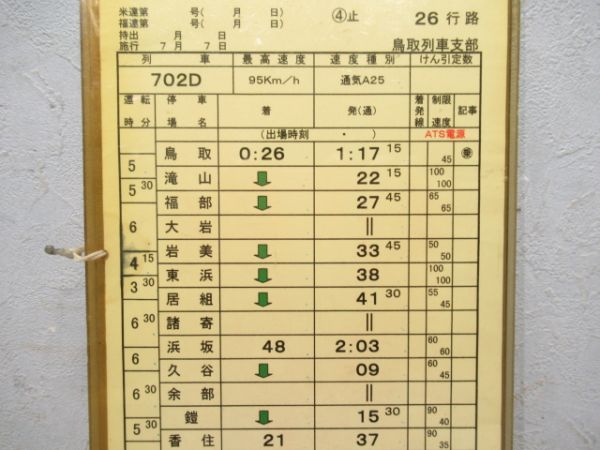 米達第 号( 月 日) ④止 26行路
福達第 号( 月 日)
持出 月 日 鳥取列車支部
施行 7月 7日
列 車 最高速度 速度種別 けん引定数
702D 95Km/h 通気A25
運転時分 停車場名 着 発(通) 着発線 制限速度 記事
(出場時刻 ・ ) ATS電源
鳥取 0:26 1:17 15 45
5
滝山 ↓ 22 15 100 100
5 30
福部 ↓ 27 45 65 65
6
大岩 ||
岩美 ↓ 33 45 50 50
4 15
東浜 ↓ 38 100 100
3 30
居組 ↓ 41 30 55 45
6 30
諸寄 ||
浜坂 48 2:03 60 60
6
久谷 ↓ 09 60 45
6 30
余部 ||
鎧 ↓ 15 30 90 40
5 30
香住 21 37 90 35